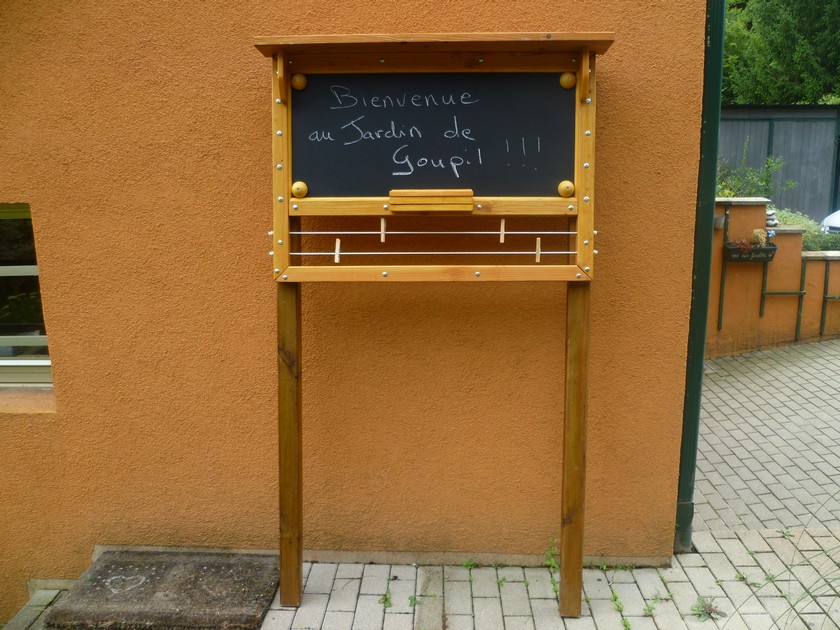 Bienvenue
au Jardin de
Goupil !!!